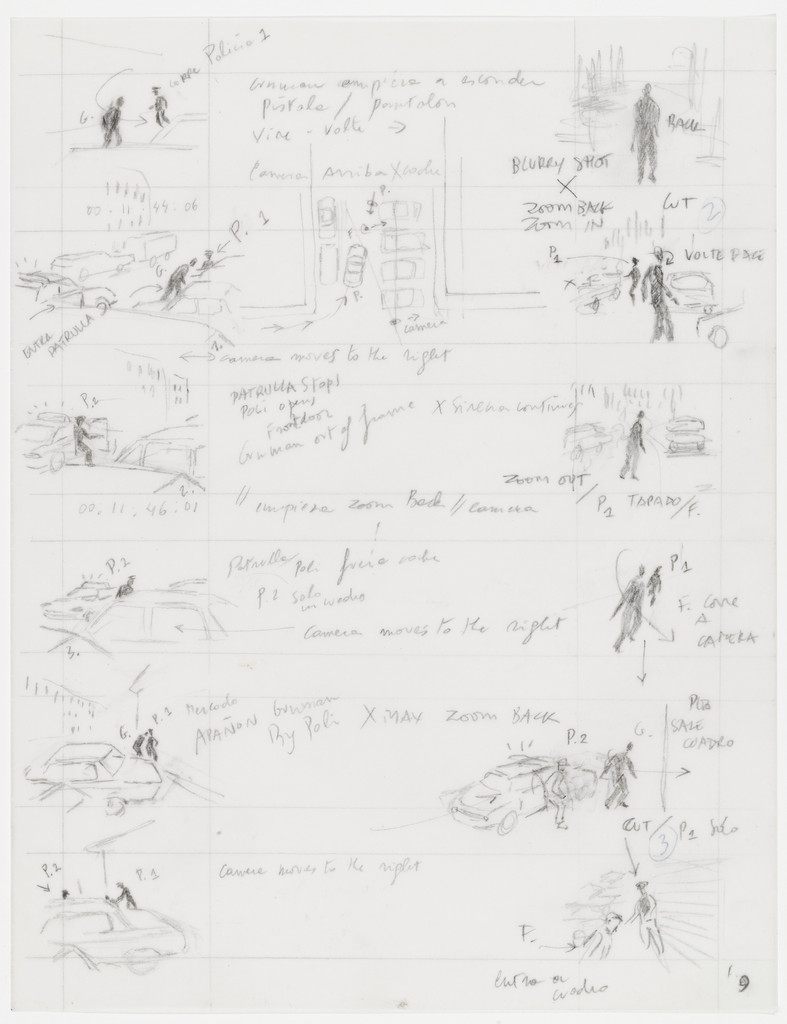 CORRE Policia 1
G.
Gunman empieza a esconder
pistola / pantalon
Vire - Volte →
Camera Arriba X coche
BACK
BLURRY SHOT
X
ZOOM BACK
ZOOM IN
CUT 2
00.11.44:06
P. 1
G.
P.
P.
P.
P1
VOLTE FACE
X
ENTRA
PATRULLA
camera
1.
camera moves to the right
PATRULLA Stops
Poli opens
Front door
Gunman out of frame X Sirena continues
P.2
2.
00.11.46:01
// empieza zoom Back // camera
ZOOM OUT
P1 TAPADO / F.
P.2
Patrulla Poli
P 2 solo
camera moves to the right
3.
P1
F. corre
A
CAMERA
G. P.1
Mercado
APAÑAN Gunman
By Poli X MAX ZOOM BACK
P.2 G.
SALE
CUADRO
CUT / 3 P1 Solo
P.2 P.1
camera moves to the right
F.
entra
cuadro
9